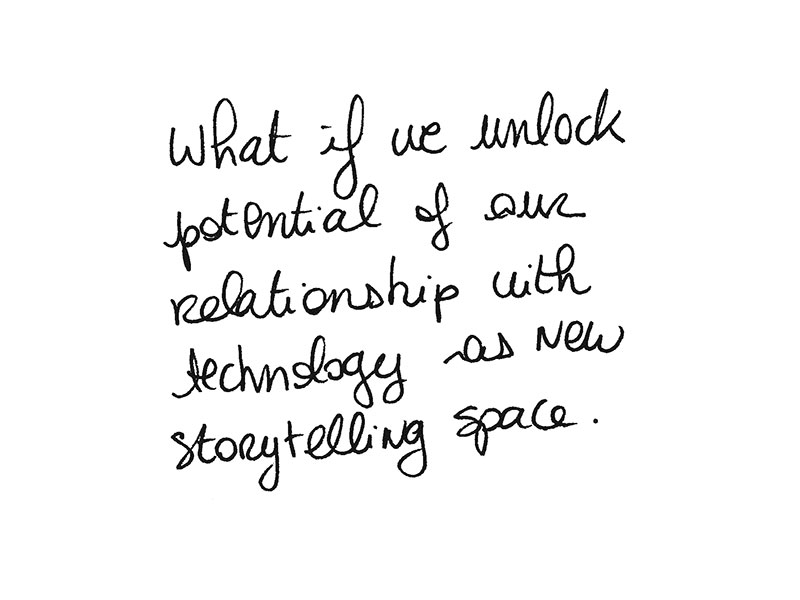 What if we unlock
potential of our
relationship with
technology as new
storytelling space.